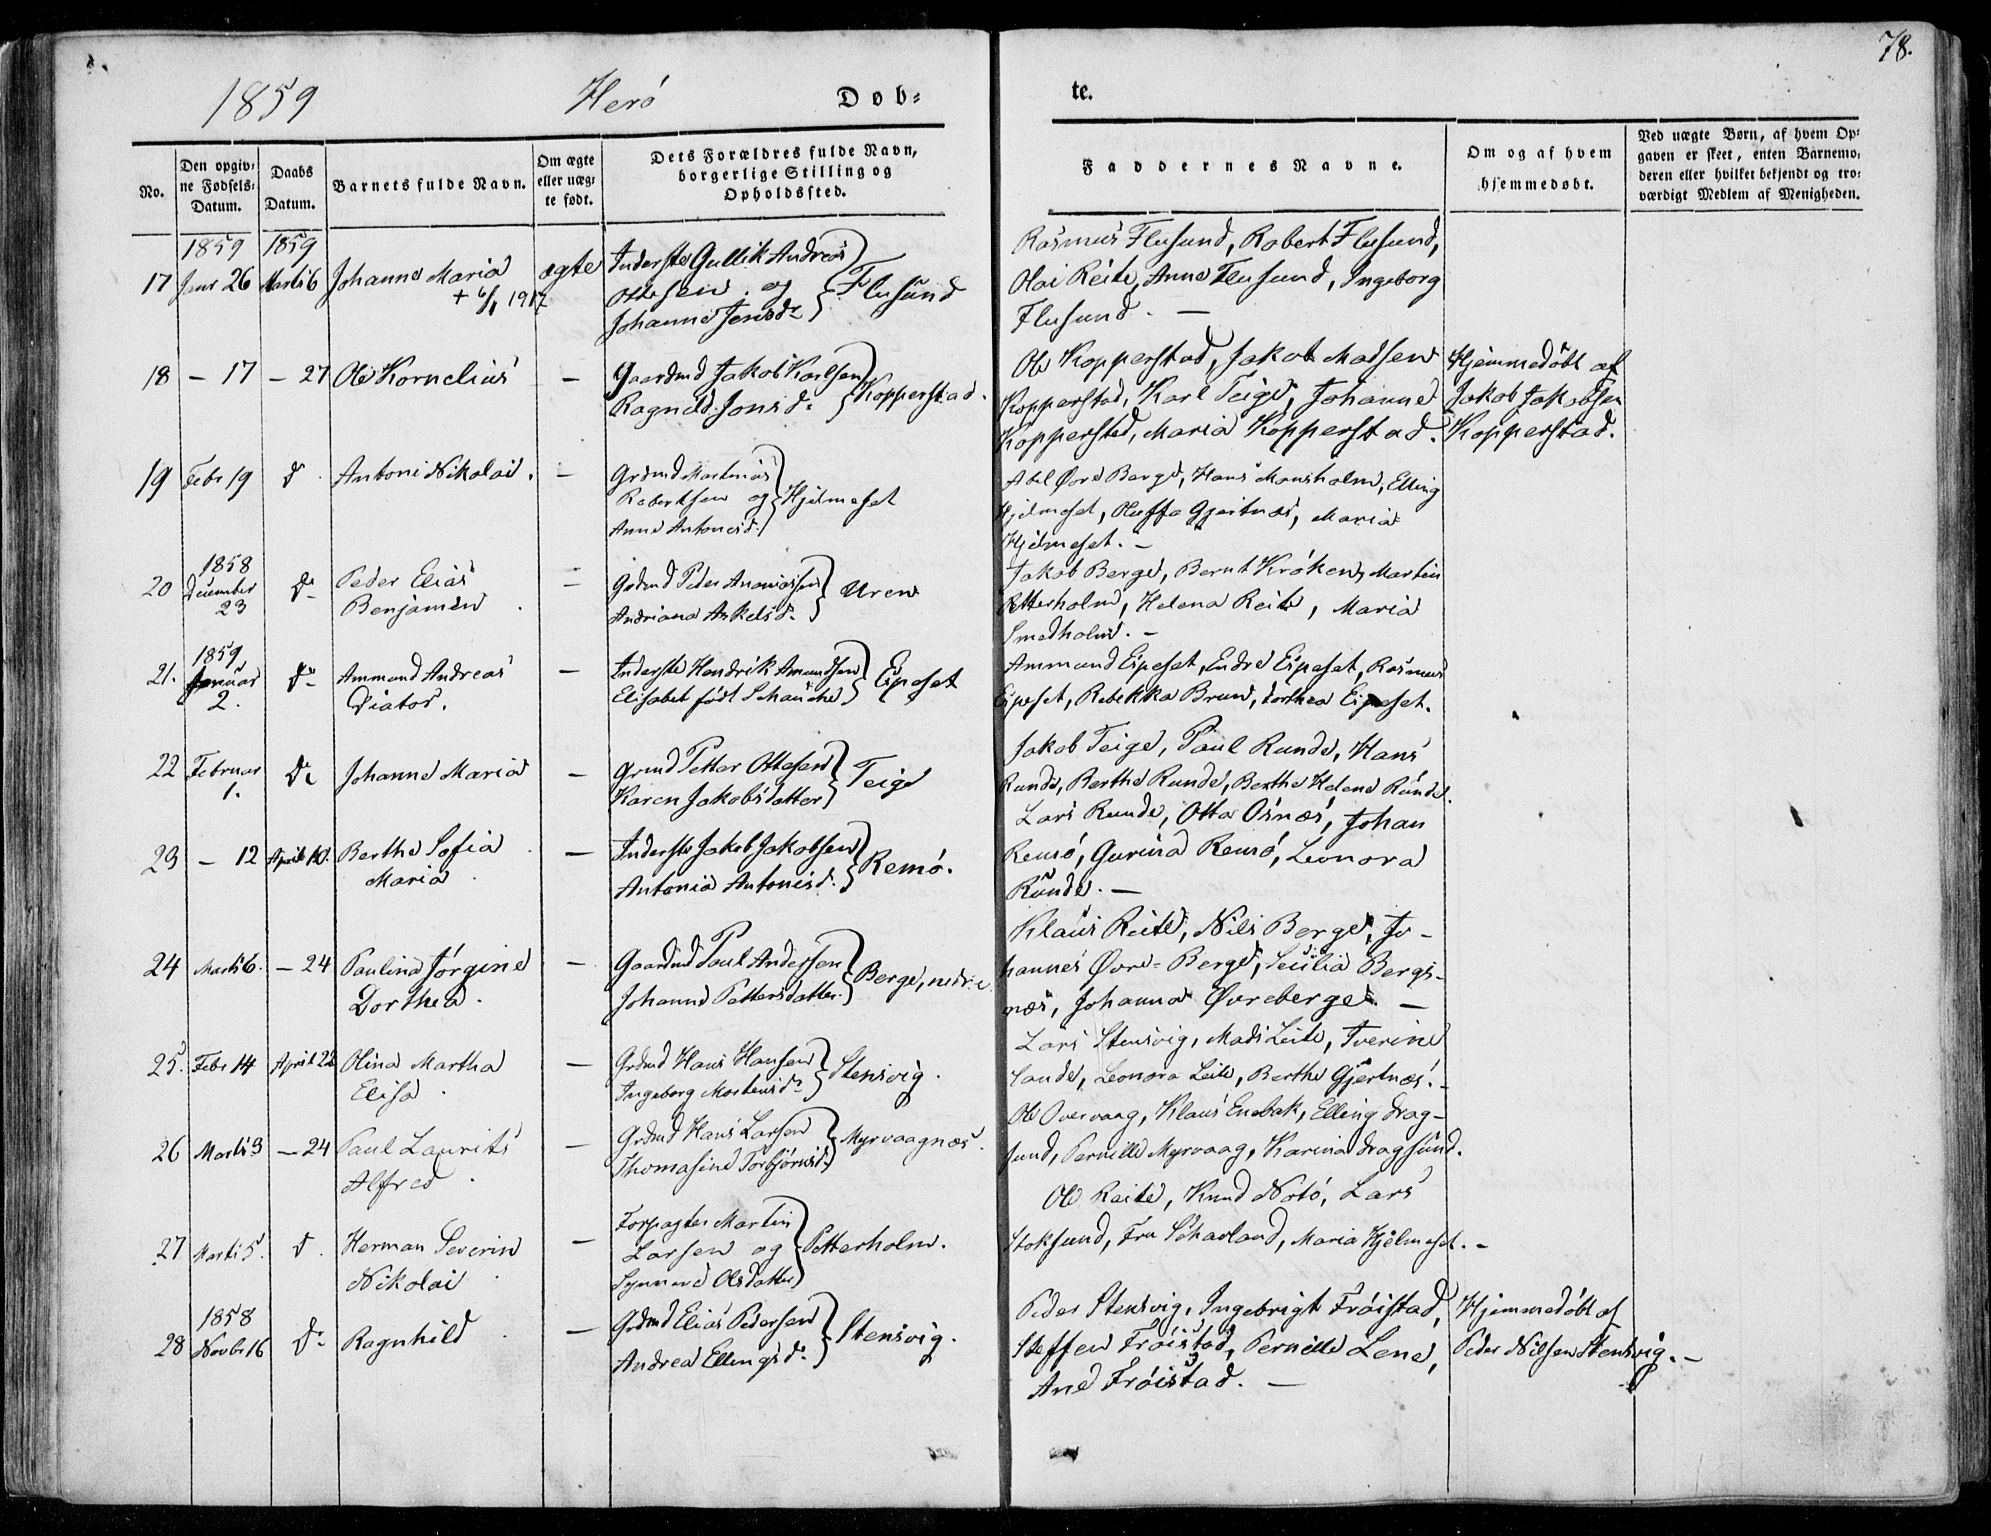 78.
1859 Herö Døb-
te.
No.
Den opgiv-
ne Fødsels-
Datum.
Daabs
Datum.
Barnets fulde Navn.
Om ægte
eller uæg-
te født.
Dets Forældres fulde Navn,
borgerlige Stilling og
Opholdssted.
Faddernes Navne.
Om og af hvem
hjemmedøbt.
Ved uægte Børn, af hvem Op-
gaven er skeet, enten Barnemo-
deren eller hvilket bekjendt og tro-
værdigt Medlem af Menigheden.
1859 1859
17 Janr 26 Marts 6 Johanne Maria ægte
+ 6/1 1917
Inderste Gullik Andreas
Ottesen og
Johanne Jensdr
Flusund
Rasmus Flusund, Robert Flusund,
Olai Reite, Anne Flusund, Ingeborg
Flusund. —
18 — 17 — 27 Ole Kornelius —
Gaardmd Jakob Karlsen
Ragnild Jonsd.
Kopperstad.
Ole Kopperstad, Jakob Madsen
Kopperstad, Karl Teige, Johanne
Kopperstad, Maria Kopperstad.
Hjemmedöbt af
Jakob Jakobsen
Kopperstad.
19 Febr 19 d. Antoni Nikolai. —
Grdmd Martinus
Robertsen og
Anne Antonisd.
Hjelmeset
Abel Øvre Berge, Hans Monsholm, Elling
Hjelmeset, Oluffa Gjertnes, Maria
Hjelmeset. —
1858
20 December
23
Do Peder Elias
Benjamin —
Grdmd Peder Ananiassen
Andriana Askelsd.
Uren
Jakob Berge, Bernt Kröken, Martin
Petterholm, Helena Reite, Maria
Smedholm. —
1859
21. Januar
2.
Do Ammund Andreas
Diator. —
Inderste Hendrik Amundsen
Elisabet født Schanche
Eipeset
Ammund Eipeset, Endre Eipeset, Rasmus
Eipeset, Rebekka Brune, Dorthea Eipeset.
22 Februar
1.
Do Johanne Maria —
Grmd Petter Ottesen
Karen Jakobsdatter
Teige
Jakob Teige, Paul Runde, Hans
Runde, Berthe Runde, Berthe Helene Runde.
23 — 12 April 10. Berthe Sofia
Maria —
Inderste Jakob Jakobsen
Antonia Antonisd.
Remö.
Lars Runde, Otto Osnæs, Johan
Remö, Gurina Remö, Leonora
Runde. —
24 Marts 6. — 24 Paulina Jörgine
Dorthea. —
Gaardmd Paul Anderssen
Johanne Pettersdatter.
Berge, nedre.
Klaus Reite, Nils Berge, Jo-
hannes Øvre-Berge, Secilia Bergs-
næs, Johanna Øvreberge. —
25. Febr 14 April 22 Olina Martha
Elisa. —
Grdmd Hans Hansen
Ingeborg Mortensdr
Stensvig.
Lars Stensvig, Mads Leite, Iverine
Sande, Leonora Leite, Berthe Gjertnæs. —
26 Marts 3 — 24 Paul Laurits
Alfred. —
Grdmd Hans Larsen
Thomasine Torbjörnsd.
Myrvaagnæs.
Ole Overvaag, Klaus Enebak, Elling Drag-
sund, Pernille Myrvaag, Karina Dragsund.
27 Marts 5. d. Herman Severin
Nikolai —
Forpagter Martin
Larsen og
Synneve Olsdatter
Petterholm.
Ole Reite, Knud Notö, Lars
Stoksund, Fru Schavland, Maria Hjelmeset. —
1858
28 Novbr 16 Do Ragnhild —
Grdmd Elias Pedersen
Andrea Ellingsd.
Stensvig.
Peder Stensvig, Ingebrigt Fröistad,
Steffen Fröistad, Pernille Lene,
Ane Fröistad. —
Hjemmedöbt af
Peder Nilsen Stensvig. —